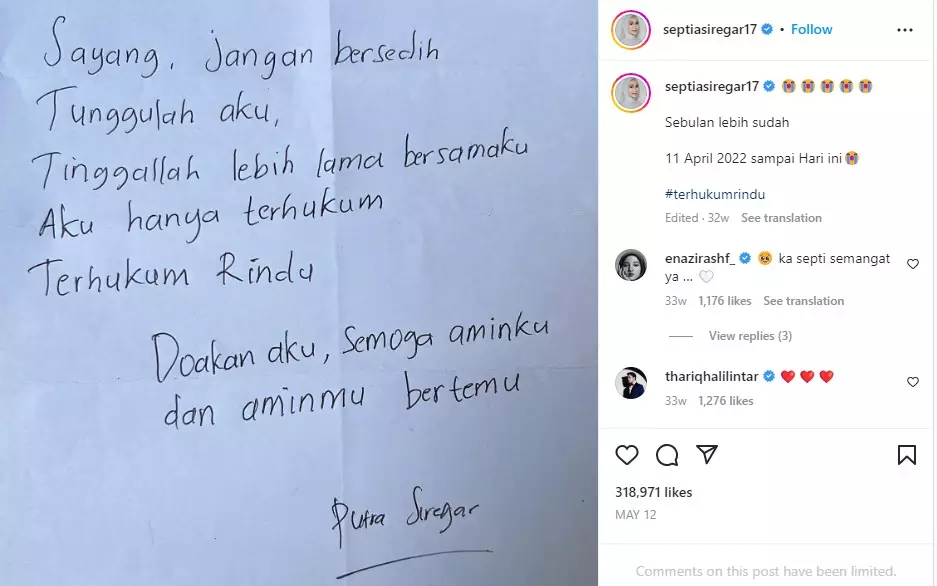 Sayang, jangan bersedih
Tunggulah aku,
Tinggallah lebih lama bersamaku
Aku hanya terhukum
Terhukum Rindu
Doakan aku, Semoga aminku
dan aminmu bertemu
Putra Siregar
septiasiregar17 • Follow
septiasiregar17 😭 😭 😭 😭 😭
Sebulan lebih sudah
11 April 2022 sampai Hari ini😭
#terhukumrindu
Edited · 32w See translation
enazirashf_ 🥺 ka septi semangat
ya ... 🤍
33w 1,176 likes See translation
View replies (3)
thariqhalilintar ❤️ ❤️ ❤️
33w 1,276 likes
318,971 likes
MAY 12
Comments on this post have been limited.